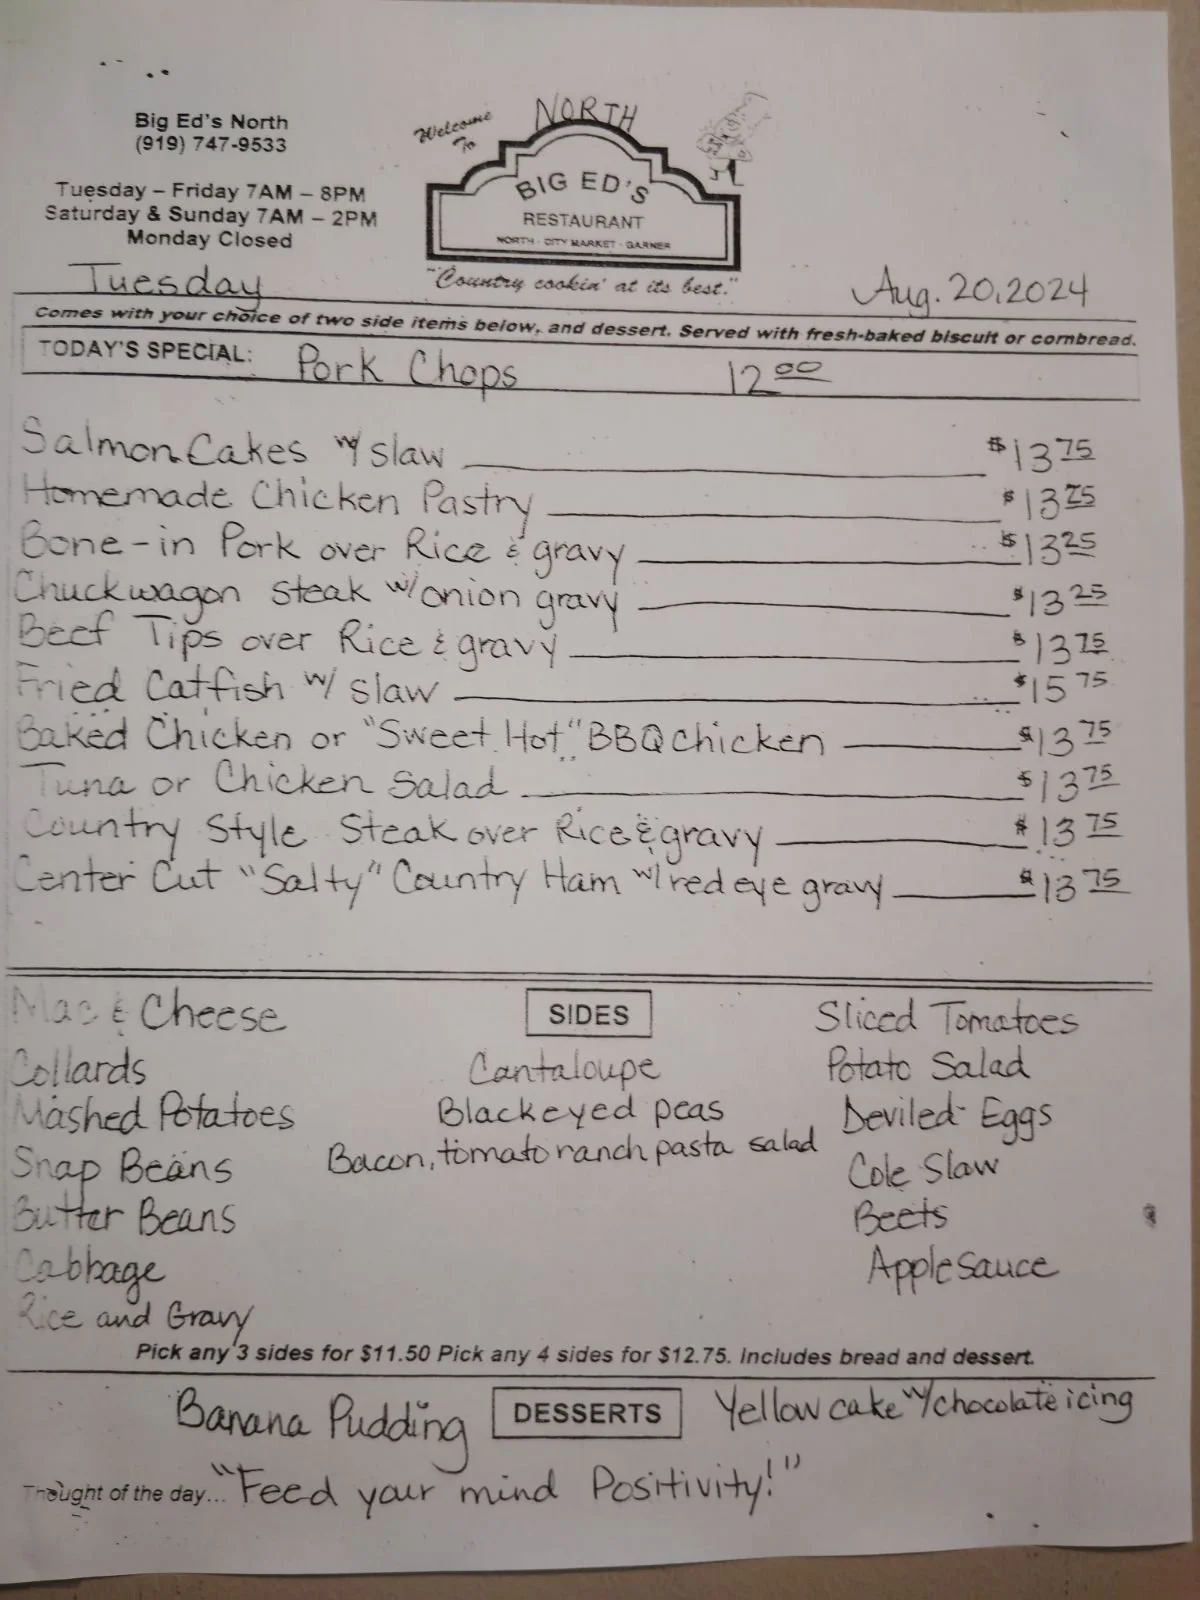 Big Ed's North
(919) 747-9533
Tuesday – Friday 7AM – 8PM
Saturday & Sunday 7AM – 2PM
Monday Closed
Welcome
To
NORTH
BIG ED'S
RESTAURANT
NORTH - CITY MARKET - GARNER
"Country cookin' at its best."
Tuesday
Aug. 20, 2024
Comes with your choice of two side items below, and dessert. Served with fresh-baked biscuit or cornbread.
TODAY'S SPECIAL: Pork Chops 12 00
Salmon Cakes w/ slaw $13 75
Homemade Chicken Pastry $13 75
Bone-in Pork over Rice & gravy $13 25
Chuckwagon steak w/ onion gravy $13 25
Beef Tips over Rice & gravy $13 75
Fried Catfish w/ slaw $15 75
Baked Chicken or "Sweet Hot" BBQ chicken $13 75
Tuna or Chicken Salad $13 75
Country Style Steak over Rice & gravy $13 75
Center Cut "Salty" Country Ham w/ red eye gravy $13 75
SIDES
Mac & Cheese
Collards
Mashed Potatoes
Snap Beans
Butter Beans
Cabbage
Rice and Gravy
Cantaloupe
Blackeyed peas
Bacon, tomato ranch pasta salad
Sliced Tomatoes
Potato Salad
Deviled Eggs
Cole Slaw
Beets
Applesauce
Pick any 3 sides for $11.50 Pick any 4 sides for $12.75. Includes bread and dessert.
Banana Pudding DESSERTS Yellow cake w/ chocolate icing
Thought of the day... "Feed your mind Positivity!"